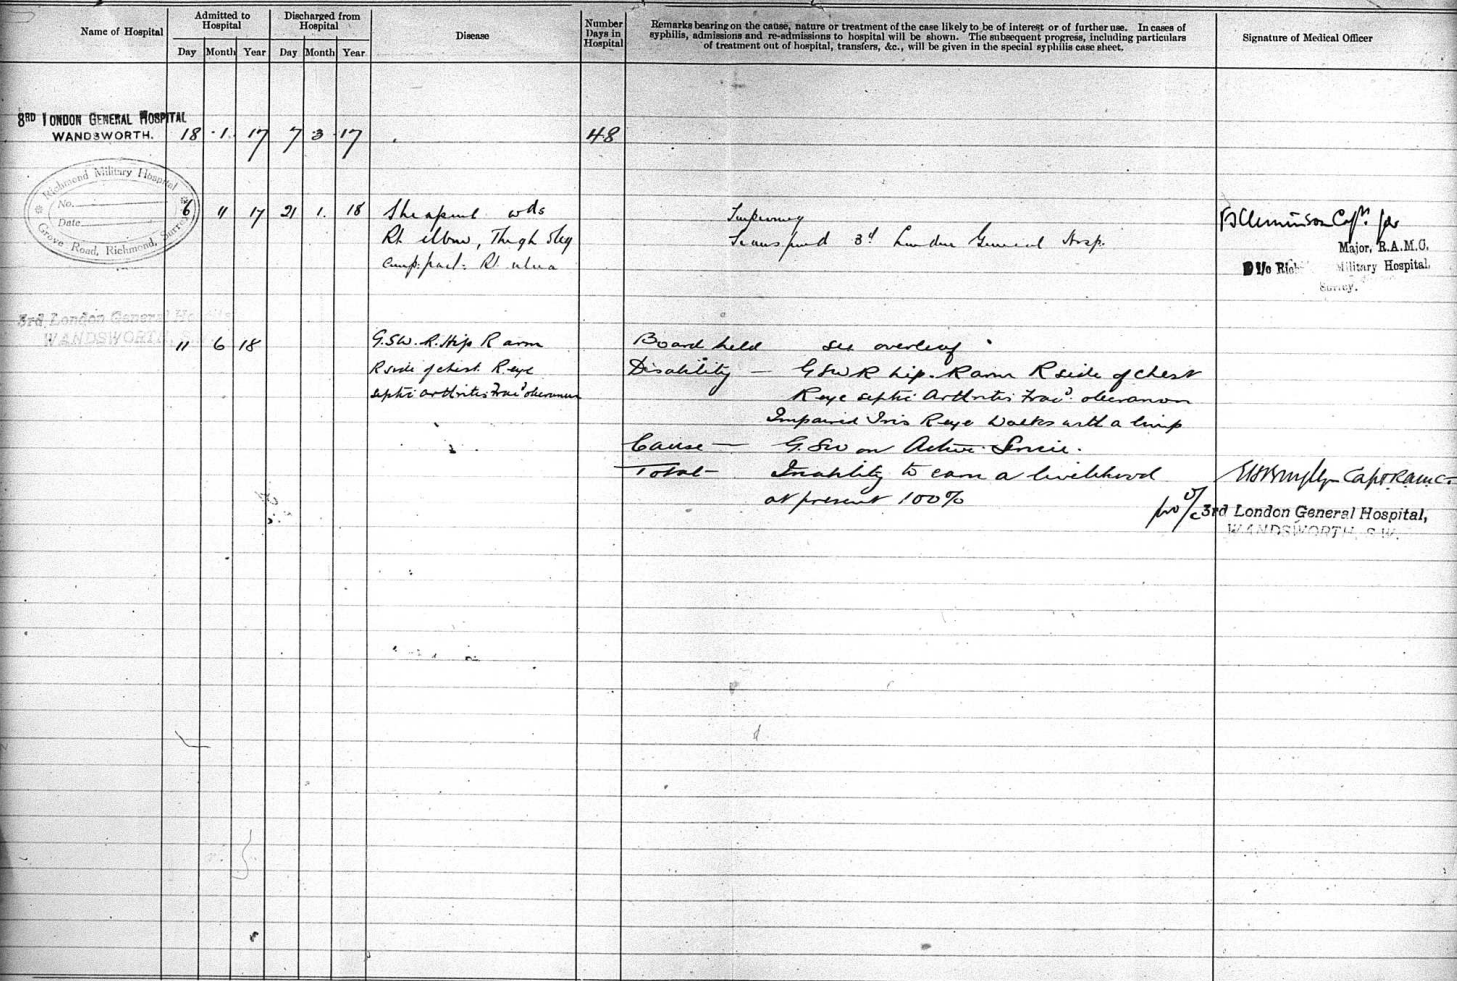 Name of Hospital
Admitted to Hospital
Day Month Year
Discharged from Hospital
Day Month Year
Disease
Number Days in Hospital
Remarks bearing on the cause, nature or treatment of the case likely to be of interest or of further use. In cases of
syphilis, admissions and re-admissions to hospital will be shown. The subsequent progress, including particulars
of treatment out of hospital, transfers, &c., will be given in the special syphilis case sheet.
Signature of Medical Officer
3RD LONDON GENERAL HOSPITAL
WANDSWORTH.
18 1 17 7 3 17
48
Richmond Military Hospital
No.
Date
Grove Road, Richmond, Surrey
6 11 17 21 1 18
Shrapnel wds
Rt elbow, Thigh & leg
Comp: fract: Rt ulna
Improving
Transferred 3d London General Hosp.
Capt. for
Major, R.A.M.C.
Military Hospital,
Surrey.
3rd London General Hospital
WANDSWORTH, S.W.
11 6 18
G.S.W. R. Hip R arm
R side of chest R eye
septic arthritis Frac'd olecranon
Board held see overleaf
Disability — GSW R hip. R arm R side of chest
R eye septic Arthritis Frac'd olecranon
Impaired Iris R eye Walks with a limp
Cause — G.S.W on Active Service.
Total — Inability to earn a livelihood
at present 100%
Capt RAMC
3rd London General Hospital,
WANDSWORTH, S.W.